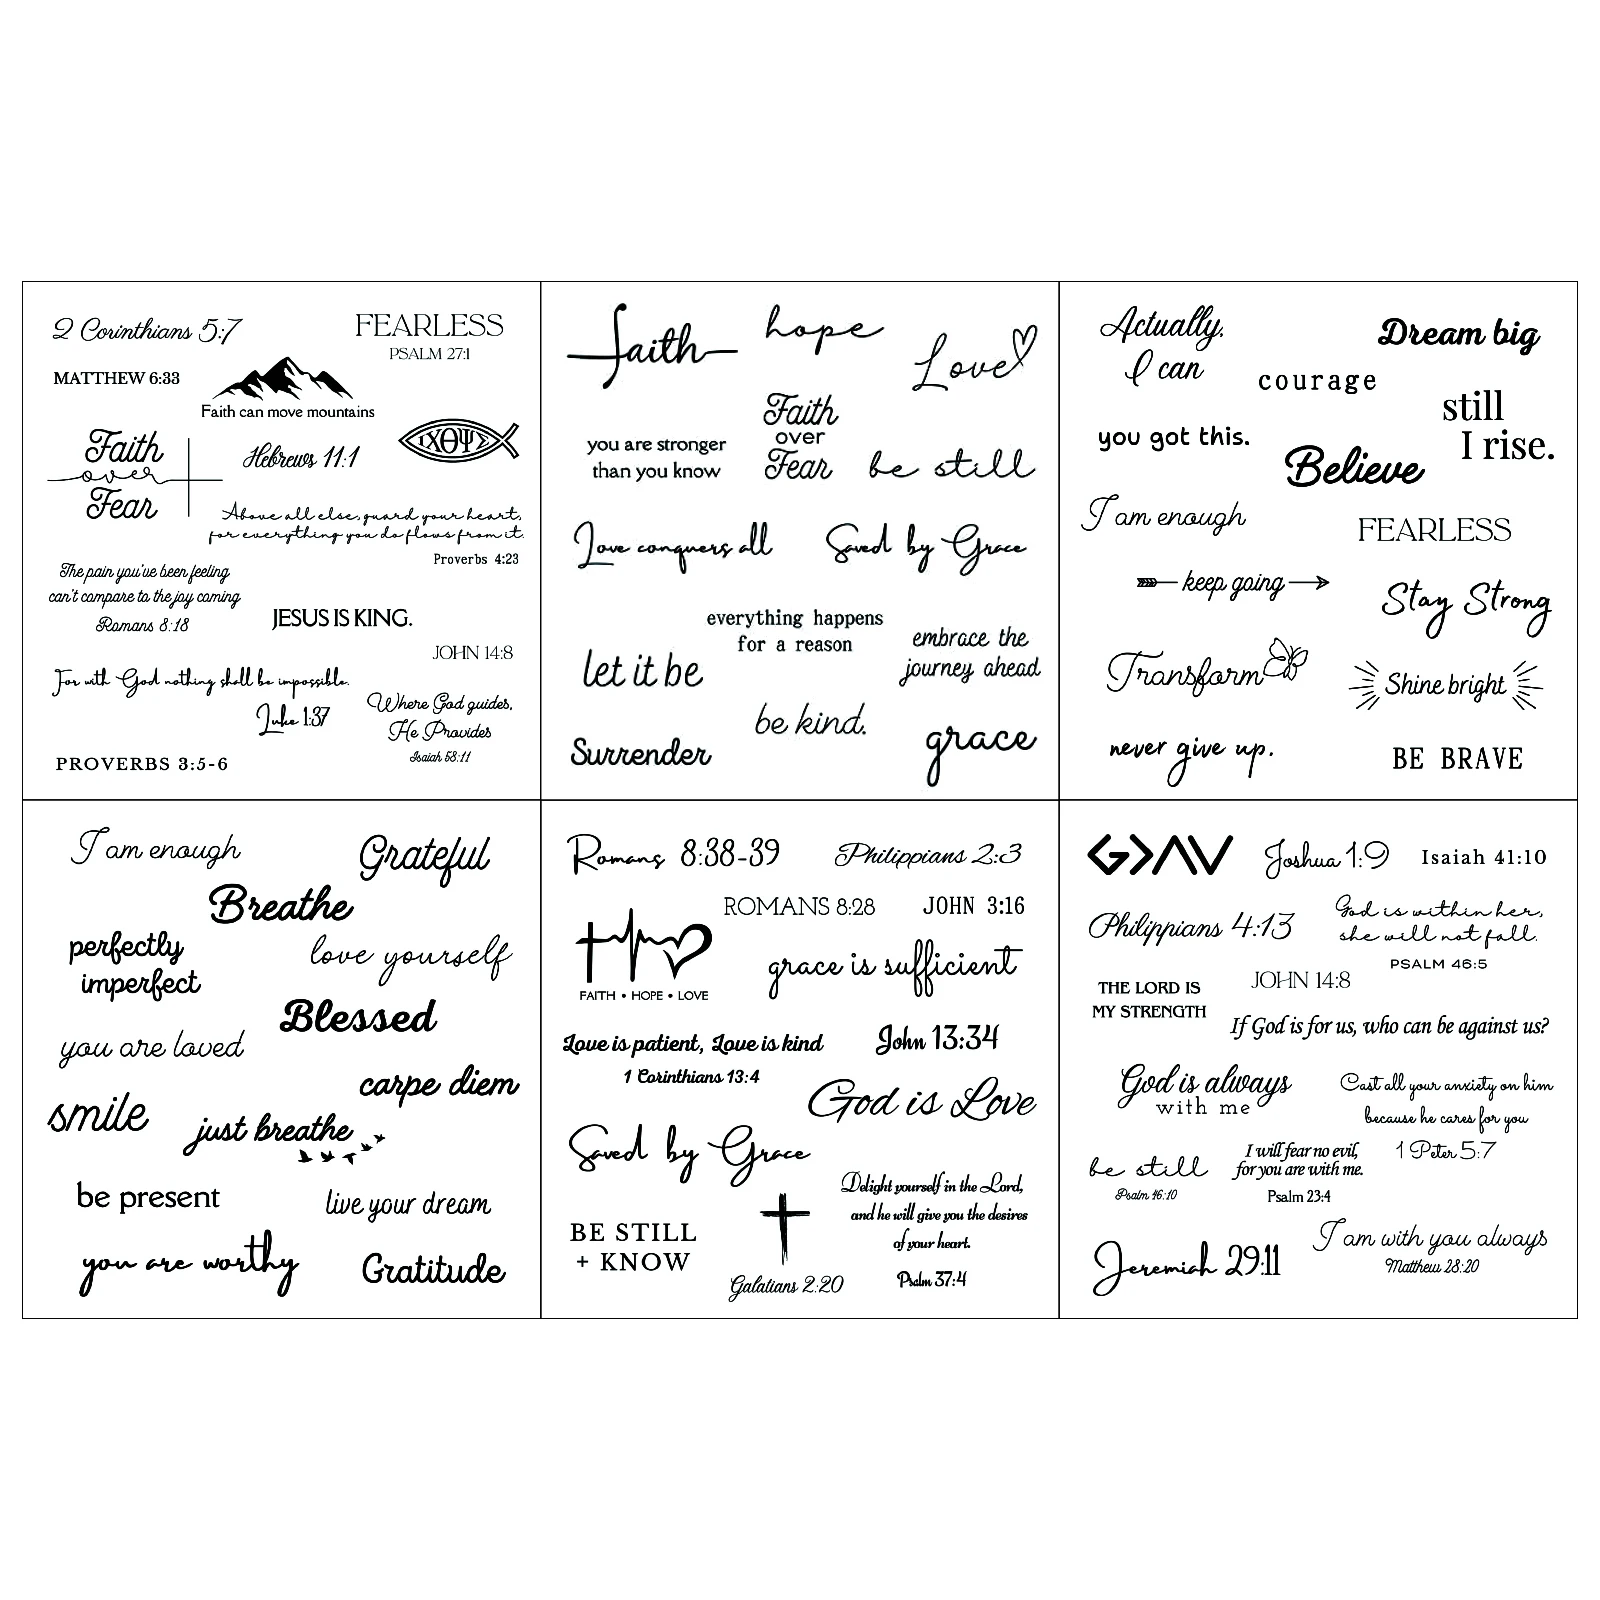 2 Corinthians 5:7
FEARLESS
PSALM 27:1
MATTHEW 6:33
Faith can move mountains
Faith
over
Fear
Hebrews 11:1
ΙΧΘΨΣ
Above all else, guard your heart,
for everything you do flows from it.
Proverbs 4:23
The pain you've been feeling
can't compare to the joy coming
Romans 8:18
JESUS IS KING.
JOHN 14:8
For with God nothing shall be impossible.
Luke 1:37
Where God guides,
He Provides
Isaiah 58:11
PROVERBS 3:5-6
faith
hope
Love
you are stronger
than you know
Faith
over
Fear
be still
Love conquers all
Saved by Grace
everything happens
for a reason
embrace the
journey ahead
let it be
be kind.
Surrender
grace
Actually,
I can
Dream big
courage
still
I rise.
you got this.
Believe
I am enough
FEARLESS
keep going
Stay Strong
Transform
Shine bright
never give up.
BE BRAVE
I am enough
Grateful
Breathe
perfectly
imperfect
love yourself
Blessed
you are loved
carpe diem
smile
just breathe
be present
live your dream
you are worthy
Gratitude
Romans 8:38-39
Philippians 2:3
ROMANS 8:28
JOHN 3:16
FAITH • HOPE • LOVE
grace is sufficient
Love is patient, Love is kind
1 Corinthians 13:4
John 13:34
God is Love
Saved by Grace
BE STILL
+ KNOW
Galatians 2:20
Delight yourself in the Lord,
and he will give you the desires
of your heart.
Psalm 37:4
G>∧∨
Joshua 1:9
Isaiah 41:10
Philippians 4:13
God is within her,
she will not fall.
PSALM 46:5
THE LORD IS
MY STRENGTH
JOHN 14:8
If God is for us, who can be against us?
God is always
with me
Cast all your anxiety on him
because he cares for you
1 Peter 5:7
be still
Psalm 46:10
I will fear no evil,
for you are with me.
Psalm 23:4
Jeremiah 29:11
I am with you always
Matthew 28:20